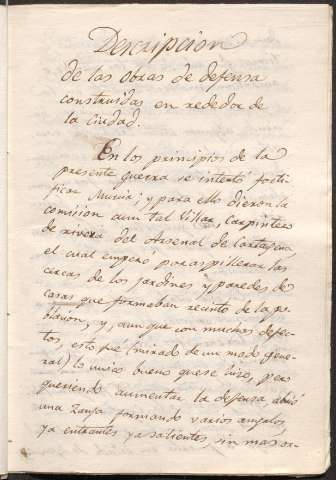 Descripcion
de las obras de defensa
construidas en rededor de
la Ciudad.
En los principios de la
presente guerra se intentó forti-
ficar Murcia; y para ello dieron la
comision a un tal Villar, Carpintero
de rivera del Arsenal de Cartagena
el cual empezó por aspillerar las
cercas de los jardines y paredes de
casas que formaban recinto de la po-
blacion, y, aunque con muchos defec-
tos, esto fue (mirado de un modo gene-
ral) lo unico bueno que se hizo, pero
queriendo aumentar la defensa abrió
una zanja formando varios angulos
ya entrantes ya salientes, sin mas or-